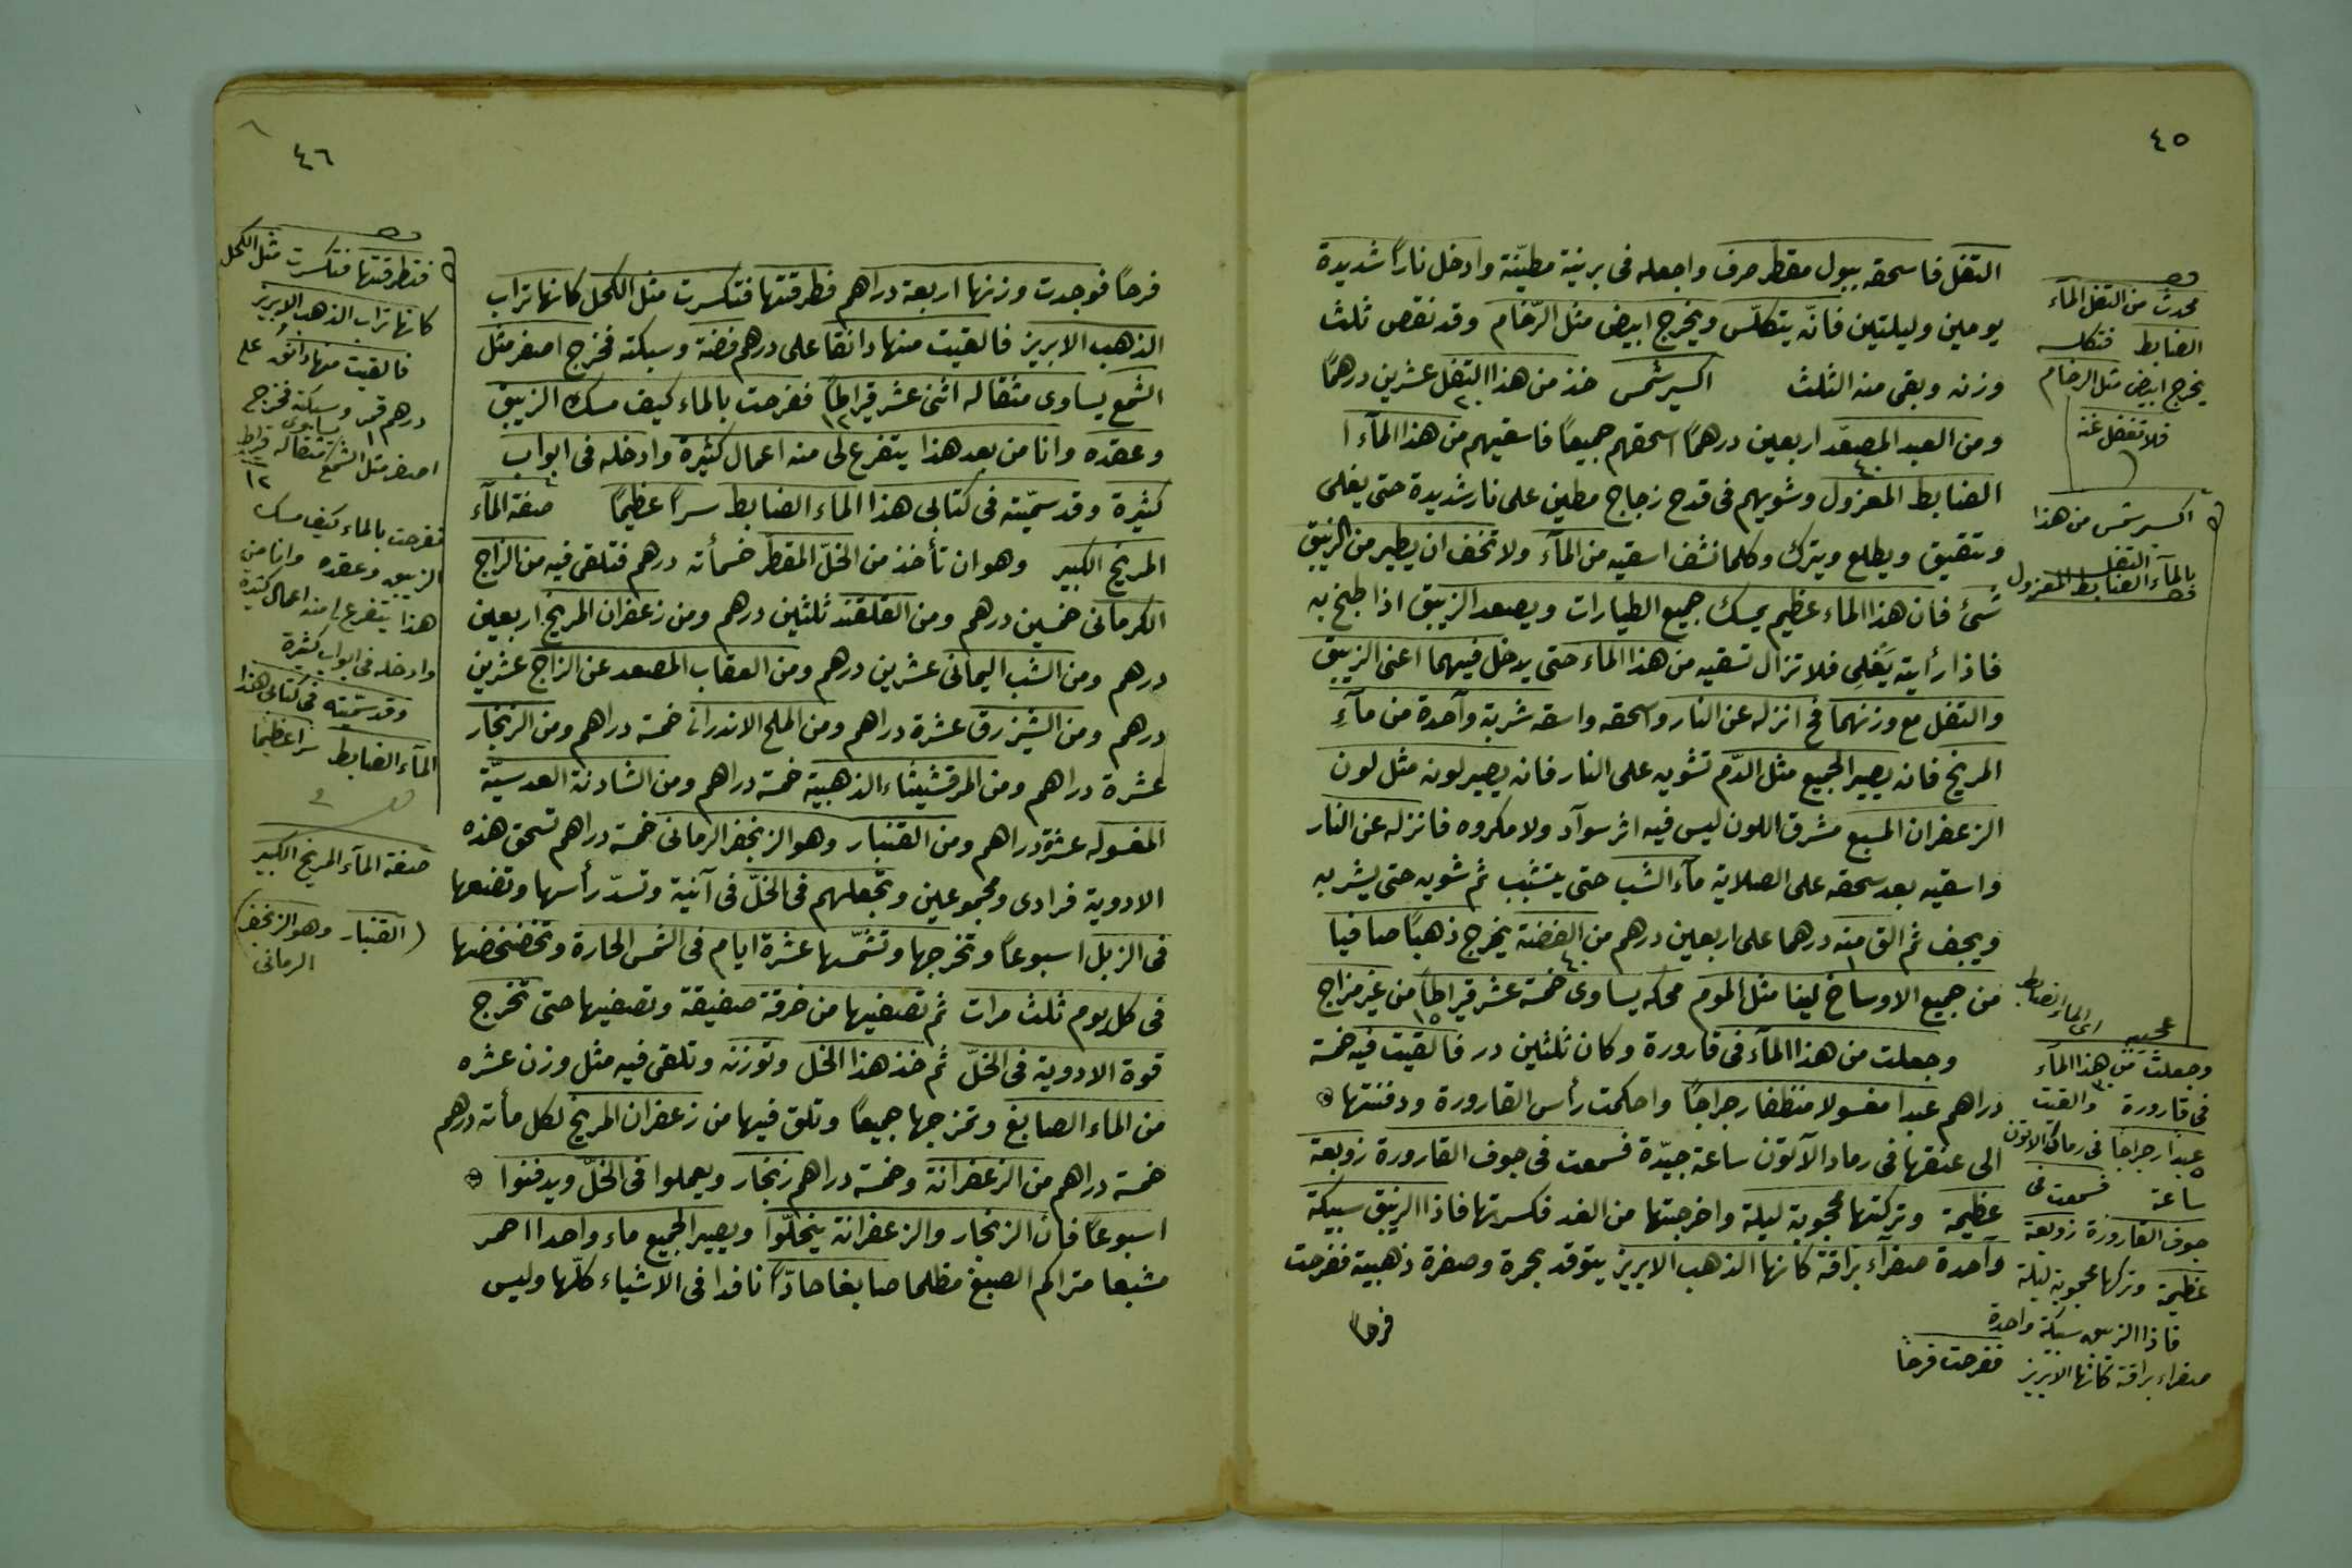 ٤٥
التفل فاسحقه ببول مقطر صرف واجعله في برنية مطيّنة وادخل ناراً شديدة
يومين وليلتين فانّه يتكلّس ويخرج ابيض مثل الرّخام وقد نقص ثلث
وزنه وبقي منه الثلث اكسير شمس خذ من هذا التفل عشرين درهمًا
٢٠
ومن العبد المصعّد اربعين درهمًا اسحقهم جميعًا فاسقيهم من هذا المآء ا
٤٠
الضابط المعزول وشويهم في قدح زجاج مطين على نار شديدة حتى يغلى
وتقيق ويطلع ويترك وكلما نشف اسقيه من المآء ولا تخف ان يطير من الزيبق
شئ فان هذا الماء عظيم يمسك جميع الطيارات ويصعد الزيبق اذا طبخ به
فاذا رأيته يَغلِى فلا تزال تسقيه من هذا الماء حتى يدخل فيهما اعنى الزيبق
والتفل مع وزنهما فح انزله عن النار واسحقه واسقه شربة وآحدة من مآءِ
المريخ فانه يصير الجميع مثل الدّم تشويه على النار فانه يصير لونه مثل لون
الزعفران المسبع مشرق اللون ليس فيه اثر سوآد ولا مكروه فانزله عن النار
واسقيه بعد سحقه على الصلاية مآء الشب حتى يتشبب ثم شويه حتى يشربه
ويجف ثم الق منه درهما على اربعين درهم من الفضة يخرج ذهبًا صافيا
١ ٤٠
من جميع الاوساخ لينا مثل الموم محكه يساوى خمسة عشر قيراطاً من غير مزاج
١٥
وجعلت من هذا المآء في قارورة وكان ثلثين در فالقيت فيه خمسة
دراهم عبدا مغسولا منظفا رجراجًا واحكمت رأس القارورة ودفنتها
الى عنقها في رماد الآتون ساعة جيّدة فسمعت في جوف القارورة زوبعة
عظيمة وتركتها محجوبة ليلة واخرجتها من الغد فكسرتها فاذا الزيبق سبيكة
وآحدة صفرآء براقة كانها الذهب الابريز يتوقد بحمرة وصفرة ذهبية ففرحت
فرحاً
محدث من التفل المآء
الضابط فتكلسه
يخرج ابيض مثل الرخام
فلا تغفل عنه
اكسير شمس من هذا
التفل
بالمآء الضابط المعزول
اى الماء الضابط
عجيبه
وجعلت من هذا المآء
٣٠
في قارورة والقيت
عبدا رجراجًا في رماد الاتون
٥
ساعة فسمعت في
جوف القارورة زوبعة
عظيمة وتركها محجوبة ليلة
فاذا الزيبق سبيكة واحدة
صفراء براقة كانها الابريز ففرحت فرحًا
٤٦
فرحاً فوجدت وزنها اربعة دراهم فطرقتها فتكسرت مثل الكحل كانها تراب
الذهب الابريز فالقيت منها دانقا على درهم فضة وسبكته فخرج اصفر مثل
الشمع يساوى مثقاله اثنى عشر قيراطاً ففرحت بالماء كيف مسك الزيبق
١٢
وعقده وانا من بعد هذا يتفرع لى منه اعمال كثيرة وادخله في ابواب
كثيرة وقد سمّيته في كتابى هذا الماء الضابط سراً عظيمًا صفة المآء
المريخ الكبير وهو ان تأخذ من الخلّ المقطر خمسأته درهم فتلقى فيه من الزاج
الكرمانى خمسين درهم ومن القلقند ثلثين درهم ومن زعفران المريخ اربعين
درهم ومن الشب اليمانى عشرين درهم ومن العقاب المصعد عن الزاج عشرين
درهم ومن الشيزرق عشرة دراهم ومن الملح الاندرانى خمسة دراهم ومن الزنجار
عشرة دراهم ومن المرقشيثاء الذهبية خمسة دراهم ومن الشادنة العدسيّة
المغسوله عشرة دراهم ومن القنبار وهو الزنجفر الرمانى خمسة دراهم تسحق هذه
الادوية فرادى ومجموعين وتجعلهم في الخلّ في آنية وتسدّ رأسها وتضعها
في الزبل اسبوعاً وتخرجها وتشمّسها عشرة ايام في الشمس الحارة وتخضخضها
في كل يوم ثلث مرات ثم تصفيها من خرقة صفيقة وتصفيها حتى تخرج
قوة الادوية في الخلّ ثم خذ هذا الخل وتوزنه وتلقى فيه مثل وزن عشره
من الماء الصابغ وتمزجها جميعًا وتلق فيها من زعفران المريخ لكل مأته درهم
خمسة دراهم من الزعفرانة وخمسة دراهم زنجار ويعملوا في الخلّ ويدفنوا
اسبوعاً فان الزنجار والزعفرانة ينحلّوا ويصير الجميع ماء واحدا احمر
مشبعا متراكم الصبغ مظلما صابغا حادّاً نافدا في الاشياء كلّها وليس
فتطرقتها فتكسرت مثل الكحل
كانها تراب الذهب الابريز
فالقيت منها دانق على
درهم قمر وسبكته فخرج
١
اصفر مثل الشمع يساوى مثقاله قراط
١٢
ففرحت بالماء كيف مسك
الزيبق وعقده وانا من
هذا يتفرع لى منه اعمال كثيرة
وادخله في ابواب كثيرة
وقد سمّيته في كتابى هذا
المآء الضابط سراً عظيمًا
صفة المآء المريخ الكبير
(القنبار وهو الزنجفر)
الرمانى